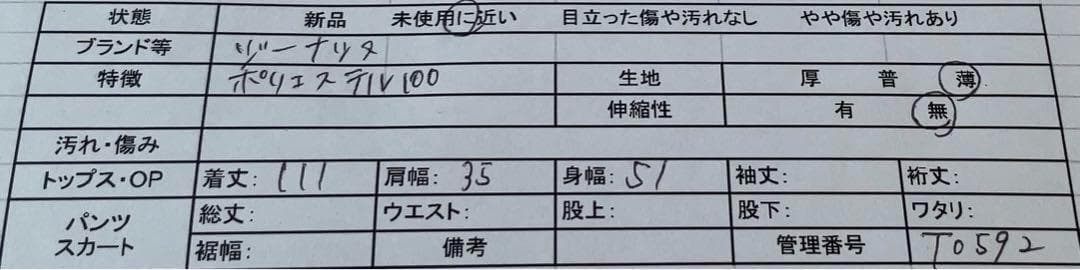 状態 新品 未使用に近い 目立った傷や汚れなし やや傷や汚れあり
ブランド等 ジーナシス
特徴 ポリエステル100 生地 厚 普 薄
伸縮性 有 無
汚れ・傷み
トップス・OP 着丈: 111 肩幅: 35 身幅: 51 袖丈: 裄丈:
パンツ スカート 総丈: ウエスト: 股上: 股下: ワタリ:
裾幅: 備考 管理番号 T0592